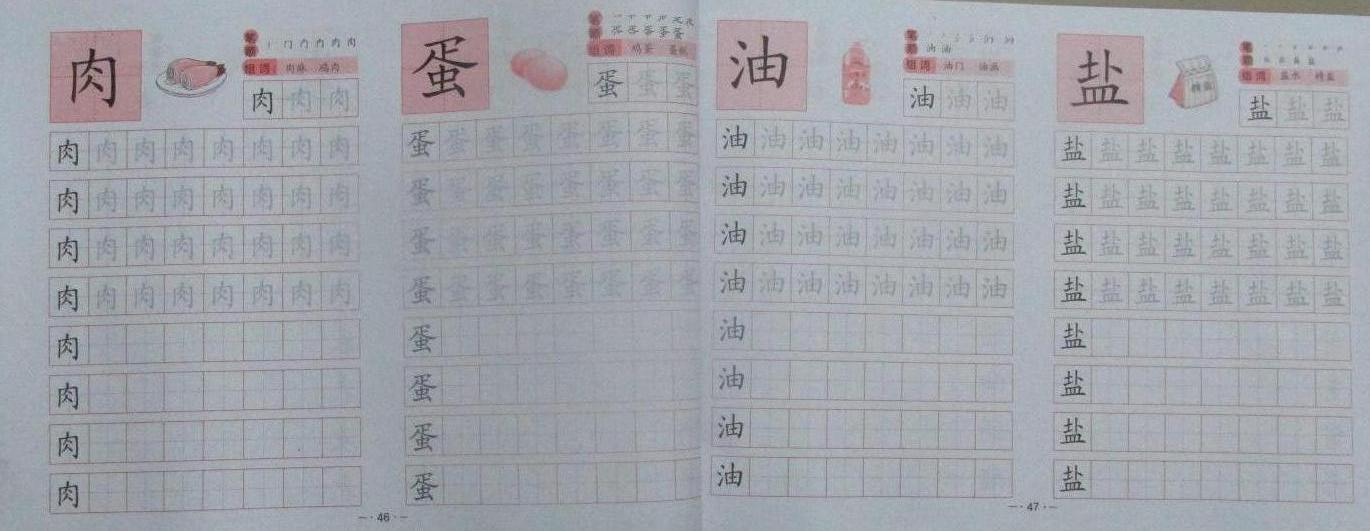 肉
笔顺
组词 肉麻 鸡肉
肉 肉 肉
肉 肉 肉 肉 肉 肉 肉 肉
肉 肉 肉 肉 肉 肉 肉 肉
肉 肉 肉 肉 肉 肉 肉 肉
肉 肉 肉 肉 肉 肉 肉 肉
肉
肉
肉
肉
蛋
笔顺
组词 鸡蛋
蛋 蛋 蛋
蛋 蛋 蛋 蛋 蛋 蛋 蛋 蛋
蛋 蛋 蛋 蛋 蛋 蛋 蛋 蛋
蛋 蛋 蛋 蛋 蛋 蛋 蛋 蛋
蛋 蛋 蛋 蛋 蛋 蛋 蛋 蛋
蛋
蛋
蛋
蛋
46
油
笔顺
组词 油门 油画
油 油 油
油 油 油 油 油 油 油 油
油 油 油 油 油 油 油 油
油 油 油 油 油 油 油 油
油 油 油 油 油 油 油 油
油
油
油
油
盐
精盐
笔顺
组词 盐水 精盐
盐 盐 盐
盐 盐 盐 盐 盐 盐 盐 盐
盐 盐 盐 盐 盐 盐 盐 盐
盐 盐 盐 盐 盐 盐 盐 盐
盐 盐 盐 盐 盐 盐 盐 盐
盐
盐
盐
盐
47